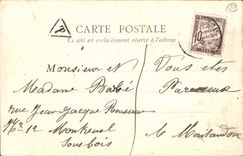 CARTE POSTALE
Ce côté est exclusivement réservé à l'adresse
T
10
Monsieur et
Madame Barbé
rue Jean-Jacque Rousseau
No 12 Montreuil
Sous bois
Vous êtes
Paresseux